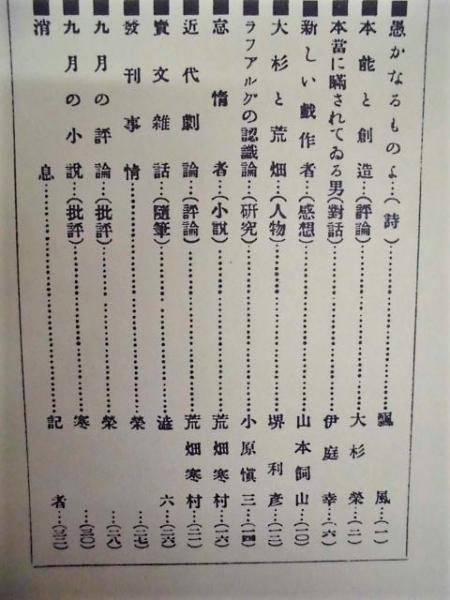 ■愚かなるものよ…(詩)…飄風…(一)
■本能と創造…(評論)…大杉榮…(二)
■本當に瞞されてゐる男(對話)…伊庭孝…(六)
■新しい戯作者…(感想)…山本飼山…(一〇)
■大杉と荒畑…(人物)…堺利彦…(一二)
■ラフアルグの認識論…(研究)…小原愼三…(一四)
■怠惰者…(小説)…荒畑寒村…(一六)
■近代劇論…(評論)…荒畑寒村…(二二)
■賣文雑話…(隨筆)…澁六…(二六)
■發刊事情…榮…(二七)
■九月の評論…(批評)…榮…(二八)
■九月の小説…(批評)…寒…(三〇)
■消息…記者…(三二)